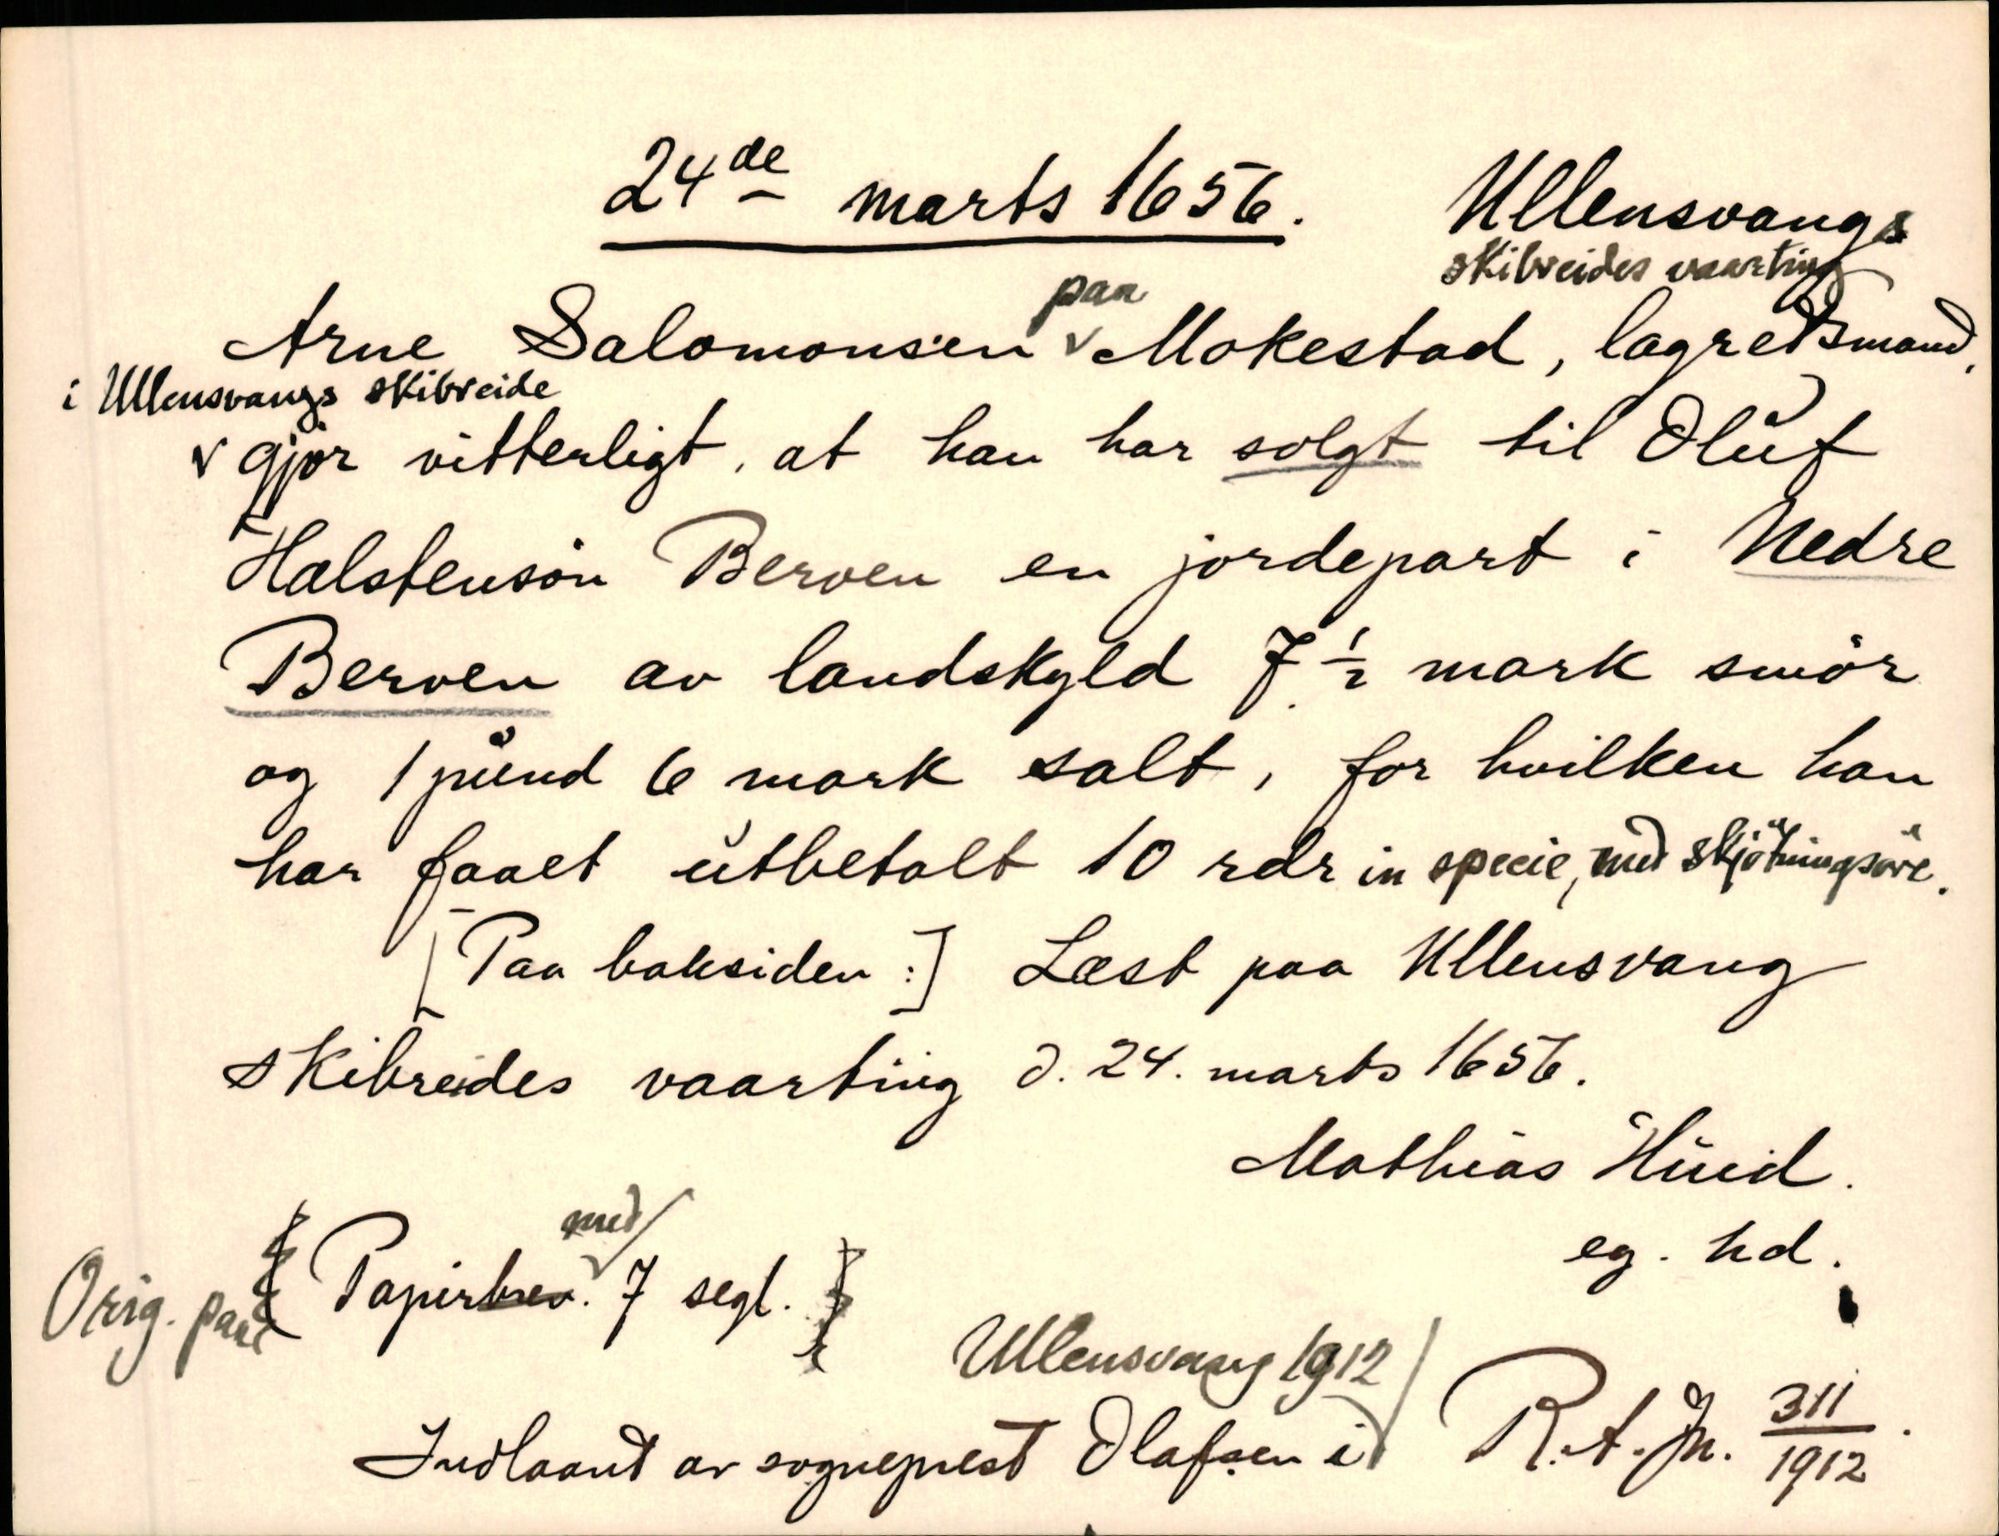 24de marts 1656. Ullensvangs
skibreides vaarting
paa
Arne Salomonsen v Mokestad, lagretsmand,
i Ullensvangs skibreide
v gjør vitterligt, at han har solgt til Oluf
Halstensøn Berven en jordepart i Nedre
Berven av landskyld 7 1/2 mark smør
og 1 pund 6 mark salt, for hvilken han
har faaet utbetalt 10 rdr in specie, med skjøtningsøre.
[Paa baksiden:] Læst paa Ullensvang
skibreides vaarting d. 24. marts 1656.
Mathias Huid.
eg. hd.
med
Orig. paa Papirbrev. v 7 segl.
Ullensvang 1912
Indlaant av sogneprest Olafsen i R.A. Jn. 311/1912.